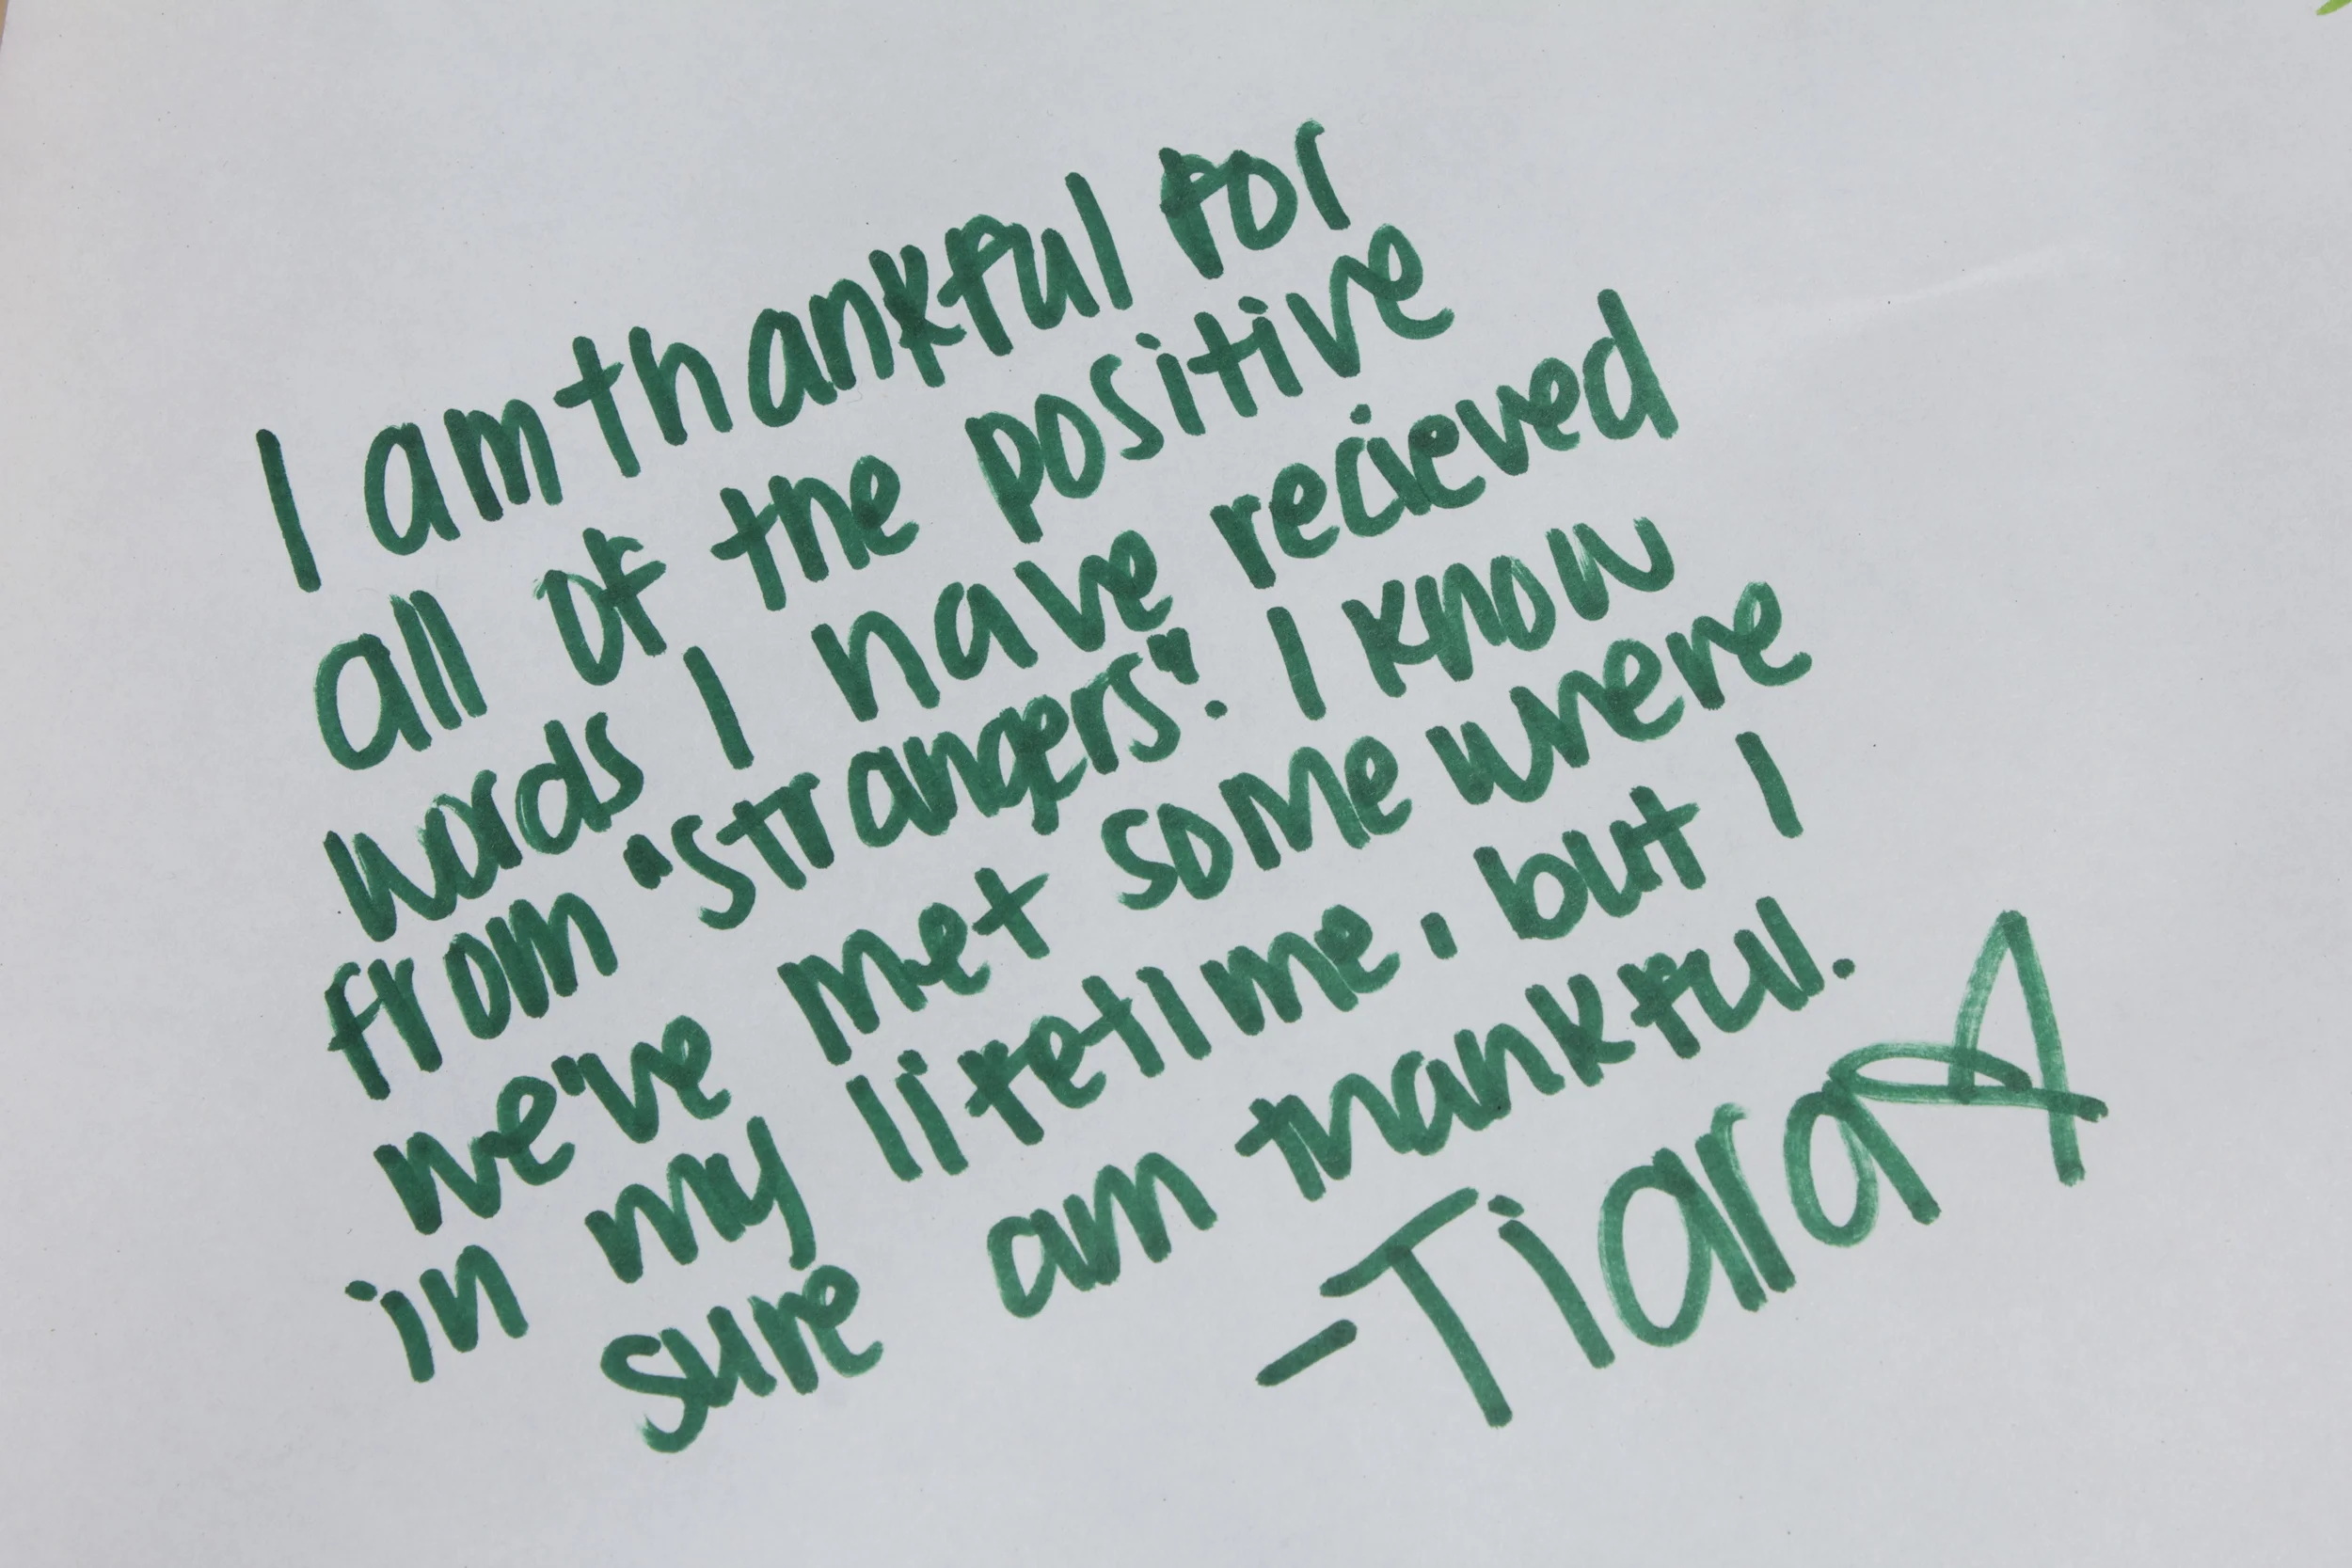 I am thankful for
all of the positive
words I have recieved
from "strangers". I know
we've met some where
in my lifetime, but I
sure am thankful.
-Tiara A